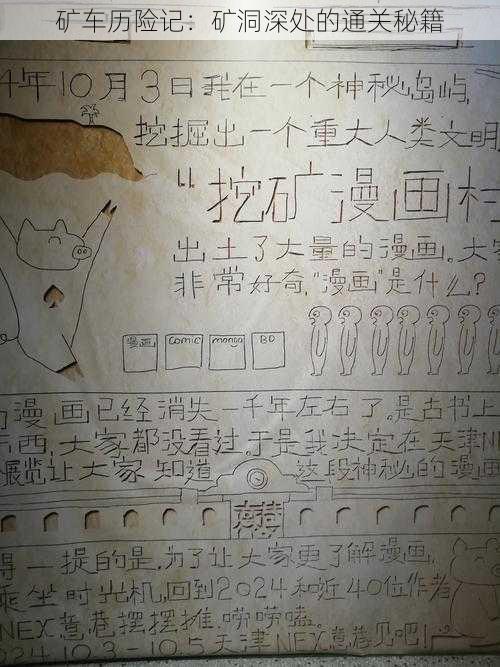 矿车历险记：矿洞深处的通关秘籍
4年10月3日我在一个神秘岛屿,
挖掘出一个重大人类文明
“挖矿漫画村
出土了大量的漫画.大家
非常好奇,“漫画”是什么?
漫画 comic manga BD
漫画已经消失一千年左右了.是古书上
东西,大家都没看过.于是我决定在天津NE
展览让大家知道 这段神秘的漫画
得一提的是,为了让大家更了解漫画,
乘坐时光机,回到2024和近40位作者
NEX意巷摆摆摊,唠唠嗑.
2024.10.3-10.5天津NEX意巷见吧!